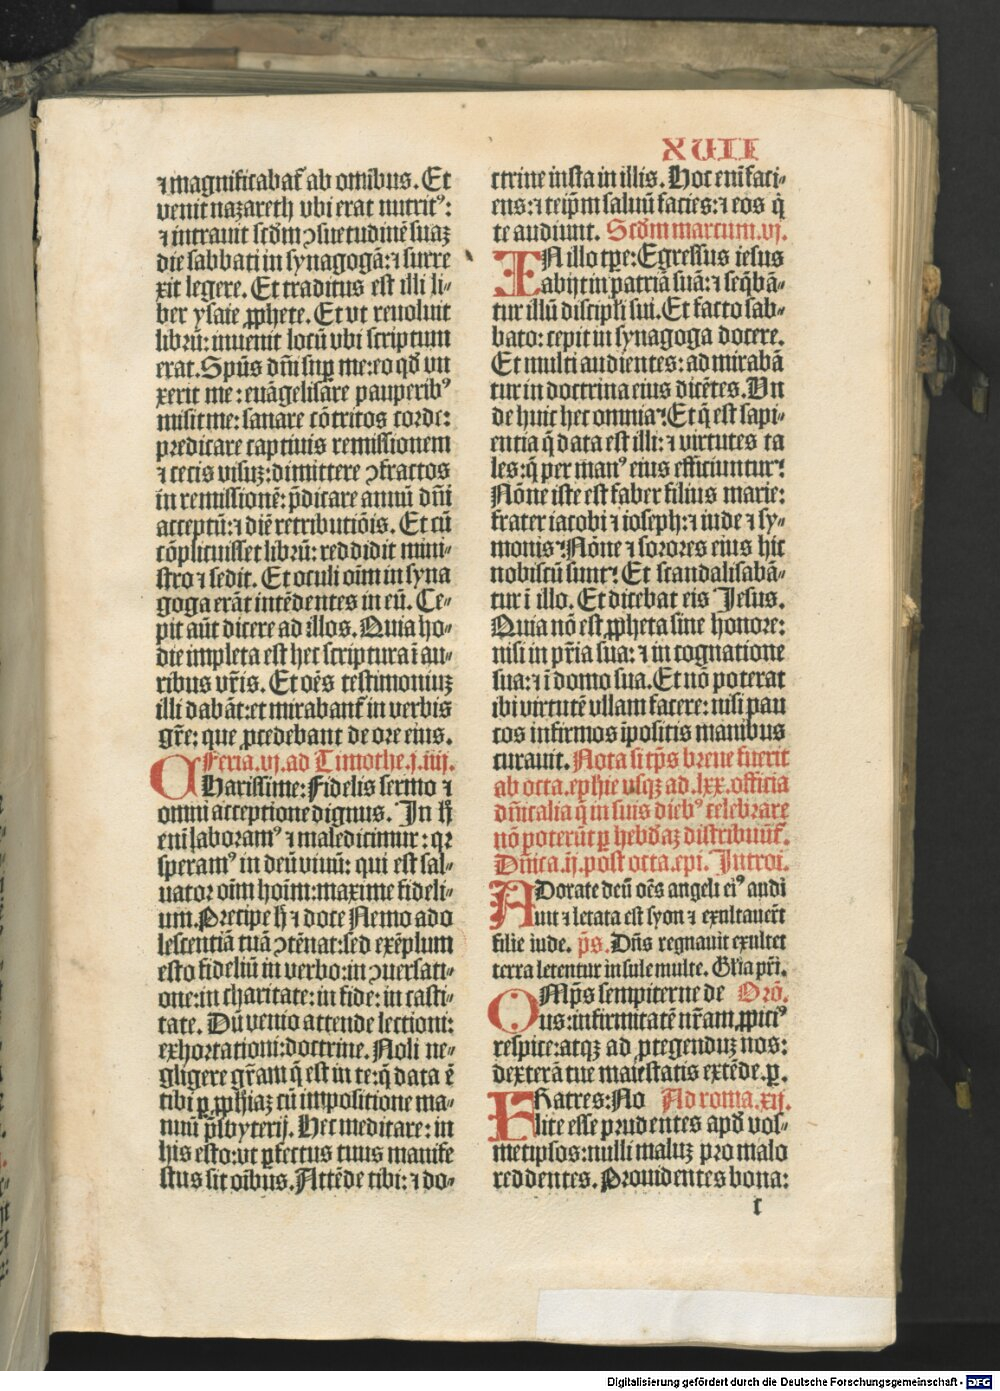 XVII
⁊magnificabat᷑ ab om̄ibus. Et
venit nazareth vbi erat nutritꝰ:
⁊ intrauit scd̄m ꝯsuetudinē suaꝫ
die sabbati in synagogā: ⁊ surre
xit legere. Et traditus est illi li-
ber ysaie ꝓphete. Et vt reuoluit
librū: inuenit locū vbi scriptum
erat. Spūs dn̄i suꝑ me: eo qd̛ vn
xerit me: euāgelisare pauperibꝰ
misit me: sanare cōtritos corde:
predicare captiuis remissionem
⁊ cecis visuꝫ: dimittere ꝯfractos
in remissionē: p̄dicare annū dn̄i
acceptū: ⁊ diē retributiōis. Et cū
cōplicuisset librū: reddidit mini-
stro ⁊ sedit. Et oculi oīm in syna
goga erāt intēdentes in eū. Ce-
pit aūt dicere ad illos. Quia ho-
die impleta est hec scriptura ī au-
ribus vr̄is. Et oēs testimoniuꝫ
illi dabāt: et mirabant᷑ in verbis
gr̄e: que ꝓcedebant de ore eius.
Feria. vj. ad Timothe. j. iiij.
CHarissime: Fidelis sermo ⁊
omni acceptione dignus. In h̄
eni laboramꝰ ⁊ maledicimur: qꝛ
speramꝰ in deū viuū: qui est sal-
uator oīm hoīm: maxime fideli-
um. Precipe h̄ ⁊ doce Nemo ado
lescentiā tuā ꝯtēnat: sed exēplum
esto fideliū in verbo: in ꝯuersati-
one: in charitate: in fide: in casti-
tate. Dū venio attende lectioni:
exhortationi: doctrine. Noli ne-
gligere gr̄am q̄ est in te: q̄ data ē
tibi ꝑ ꝓphiaꝫ cū impositione ma-
nuū p̄sbyterij. Hec meditare: in
his esto: vt ꝑfectus tuus manife
stus sit oībus. Attēde tibi: ⁊ do-
ctrine insta in illis. Hoc enī faci-
ens: ⁊ teip̄m saluū facies: ⁊ eos q̇
te audiunt. Scd̄m marcum. vj.
IN illo tꝑe: Egressus iesus
abijt in patriā suā: ⁊ seq̄bā-
tur illū discipli sui. Et facto sab-
bato: cepit in synagoga docere.
Et multi audientes: admirabā
tur in doctrina eius dicētes. Vn
de huic hec omnia? Et q̄ est sapi-
entia q̄ data est illi: ⁊ virtutes ta
les: q̄ per manꝰ eius efficiuntur?
Nōne iste est faber filius marie:
frater iacobi ⁊ ioseph: ⁊ iude ⁊ sy-
monis? Nōne ⁊ sorores eius hic
nobiscū sunt? Et scandalisabā-
tur ī illo. Et dicebat eis Jesus.
Quia nō est ꝓpheta sine honore:
nisi in pr̄ia sua: ⁊ in cognatione
sua: ⁊ ī domo sua. Et nō poterat
ibi virtutē vllam facere: nisi pau
cos infirmos īpositis manibus
curauit. Nota si tp̄s breue fuerit
ab octa. ephie vsqꝫ ad. lxx. officia
dn̄icalia q̄ in suis diebꝰ celebrare
nō poterūt ꝑ hebd̄aꝫ distribuūt᷑.
Dn̄ica. ij. post octa. epi. Introi.
ADorate deū oēs angeli eiꝰ audi
uit ⁊ letata est syon ⁊ exultauerūt
filie iude. p̄s. Dn̄s regnauit exultet
terra letentur insule multe. Gl̄ia pr̄i.
OMp̄s sempiterne de Orō.
us: infirmitatē nr̄am ꝓpiciꝰ
respice: atqꝫ ad ꝓtegenduꝫ nos:
dexterā tue maiestatis extēde. ꝑ.
FRatres: No Ad roma. xij.
lite esse prudentes apd̛ vos-
metipsos: nulli maluꝫ pro malo
reddentes. Prouidentes bona:
c
Digitalisierung gefördert durch die Deutsche Forschungsgemeinschaft - DFG